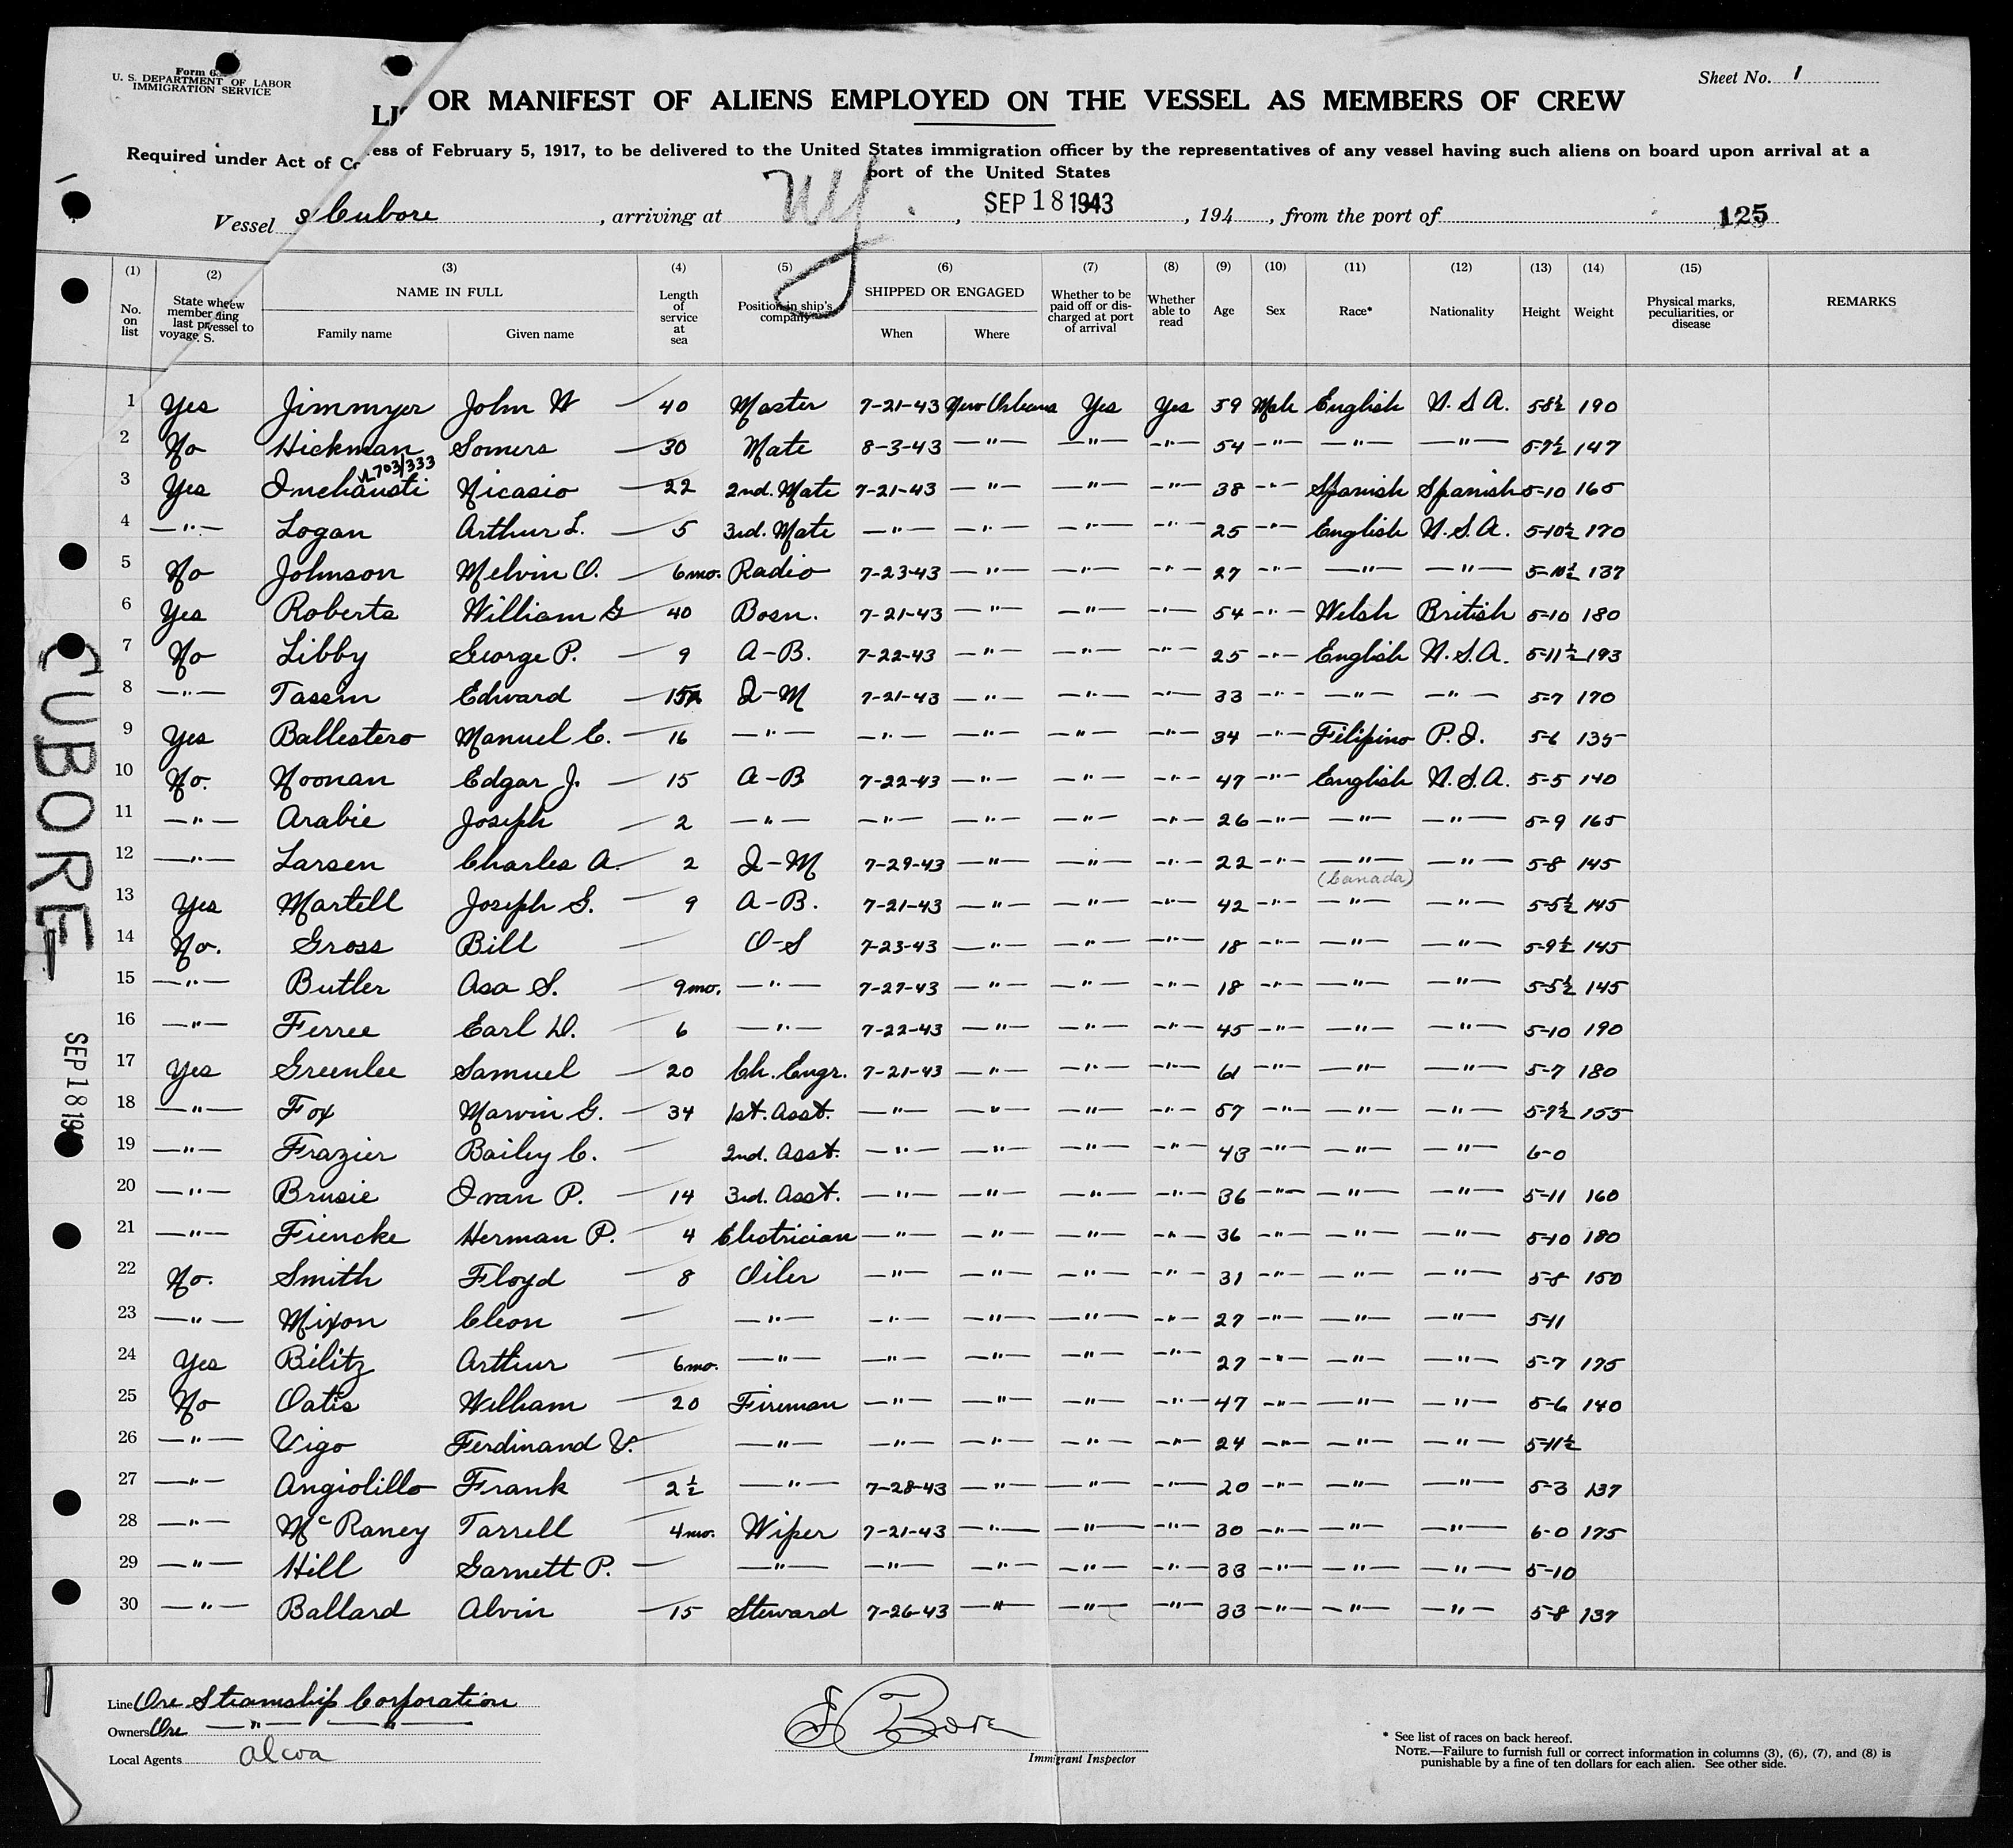 Form 6
U. S. DEPARTMENT OF LABOR
IMMIGRATION SERVICE
Sheet No. 1
OR MANIFEST OF ALIENS EMPLOYED ON THE VESSEL AS MEMBERS OF CREW
Required under Act of C ess of February 5, 1917, to be delivered to the United States immigration officer by the representatives of any vessel having such aliens on board upon arrival at a
port of the United States
Vessel S/ Cubore, arriving at NY., SEP 18 1943, 194, from the port of 125
(1) (2) (3) (4) (5) (6) (7) (8) (9) (10) (11) (12) (13) (14) (15)
No. on list | State whe ew member ding last p vessel to voyage S. | NAME IN FULL Family name Given name | Length of service at sea | Position in ship's company | SHIPPED OR ENGAGED When Where | Whether to be paid off or discharged at port of arrival | Whether able to read | Age | Sex | Race* | Nationality | Height | Weight | Physical marks, peculiarities, or disease | REMARKS
1 Yes Jimmyer John W — 40 Master 7-21-43 New Orleans Yes Yes 59 Male English U.S.A. 5-8½ 190
2 No Hickman Somers — 30 Mate 8-3-43 —"— —"— —"— 54 —"— —"— —"— 5-7½ 147
703/333
3 Yes Inchausti Nicasio — 22 2nd. Mate 7-21-43 —"— —"— —"— 38 —"— Spanish Spanish 5-10 165
4 —"— Logan Arthur L. — 5 3rd. Mate —"— —"— —"— —"— 25 —"— English U.S.A. 5-10½ 170
5 No Johnson Melvin O. — 6mo. Radio 7-23-43 —"— —"— —"— 27 —"— —"— —"— 5-10½ 137
6 Yes Roberts William G — 40 Bosn. 7-21-43 —"— —"— —"— 54 —"— Welsh British 5-10 180
7 No Libby George P. — 9 A-B. 7-22-43 —"— —"— —"— 25 —"— English U.S.A. 5-11½ 193
8 —"— Tassin Edward — 15 D-M 7-21-43 —"— —"— —"— 33 —"— —"— —"— 5-7 170
9 Yes Ballestero Manuel E. — 16 —"— —"— —"— —"— —"— 34 —"— Filipino P.I. 5-6 135
10 No. Noonan Edgar J. — 15 A-B 7-22-43 —"— —"— —"— 47 —"— English U.S.A. 5-5 140
11 —"— Arabie Joseph — 2 —"— —"— —"— —"— —"— 26 —"— —"— —"— 5-9 165
12 —"— Larsen Charles A. — 2 D-M 7-29-43 —"— —"— —"— 22 —"— —"— —"— 5-8 145
(Canada)
13 Yes Martell Joseph S. — 9 A-B. 7-21-43 —"— —"— —"— 42 —"— —"— —"— 5-5½ 145
14 No. Gross Bill — O-S 7-23-43 —"— —"— —"— 18 —"— —"— —"— 5-9½ 145
15 —"— Butler Asa S. — 9mo. —"— 7-27-43 —"— —"— —"— 18 —"— —"— —"— 5-5½ 145
16 —"— Ferree Earl D. — 6 —"— 7-22-43 —"— —"— —"— 45 —"— —"— —"— 5-10 190
17 Yes Greenlee Samuel — 20 Ch. Engr. 7-21-43 —"— —"— —"— 61 —"— —"— —"— 5-7 180
18 —"— Fox Marvin G. — 34 1st. Asst. —"— —"— —"— —"— 57 —"— —"— —"— 5-7½ 155
19 —"— Frazier Bailey C. — 2nd. Asst. —"— —"— —"— —"— 43 —"— —"— —"— 6-0
20 —"— Brusie Ivan P. — 14 3rd. Asst. —"— —"— —"— —"— 36 —"— —"— —"— 5-11 160
21 —"— Fiencke Herman P. — 4 Electrician —"— —"— —"— —"— 36 —"— —"— —"— 5-10 180
22 No. Smith Floyd — 8 Oiler —"— —"— —"— —"— 31 —"— —"— —"— 5-8 150
23 —"— Mixon Cleon — —"— —"— —"— —"— —"— 27 —"— —"— —"— 5-11
24 Yes Bilitz Arthur — 6mo. —"— —"— —"— —"— —"— 27 —"— —"— —"— 5-7 175
25 No Oatis William — 20 Fireman —"— —"— —"— —"— 47 —"— —"— —"— 5-6 140
26 —"— Vigo Ferdinand V. —"— —"— —"— —"— —"— 24 —"— —"— —"— 5-11½
27 —"— Angiolillo Frank — 2½ —"— 7-28-43 —"— —"— —"— 20 —"— —"— —"— 5-3 137
28 —"— McRaney Tarrell — 4mo. Wiper 7-21-43 —"— —"— —"— 30 —"— —"— —"— 6-0 175
29 —"— Hill Garnett P. — —"— —"— —"— —"— —"— 33 —"— —"— —"— 5-10
30 —"— Ballard Alvin — 15 Steward 7-26-43 —"— —"— —"— 33 —"— —"— —"— 5-8 137
CUBORE
SEP 18 19
Line Ore Steamship Corporation
Owners Ore —"— —"—
Local Agents Alcoa
Immigrant Inspector
* See list of races on back hereof.
NOTE.—Failure to furnish full or correct information in columns (3), (6), (7), and (8) is
punishable by a fine of ten dollars for each alien. See other side.